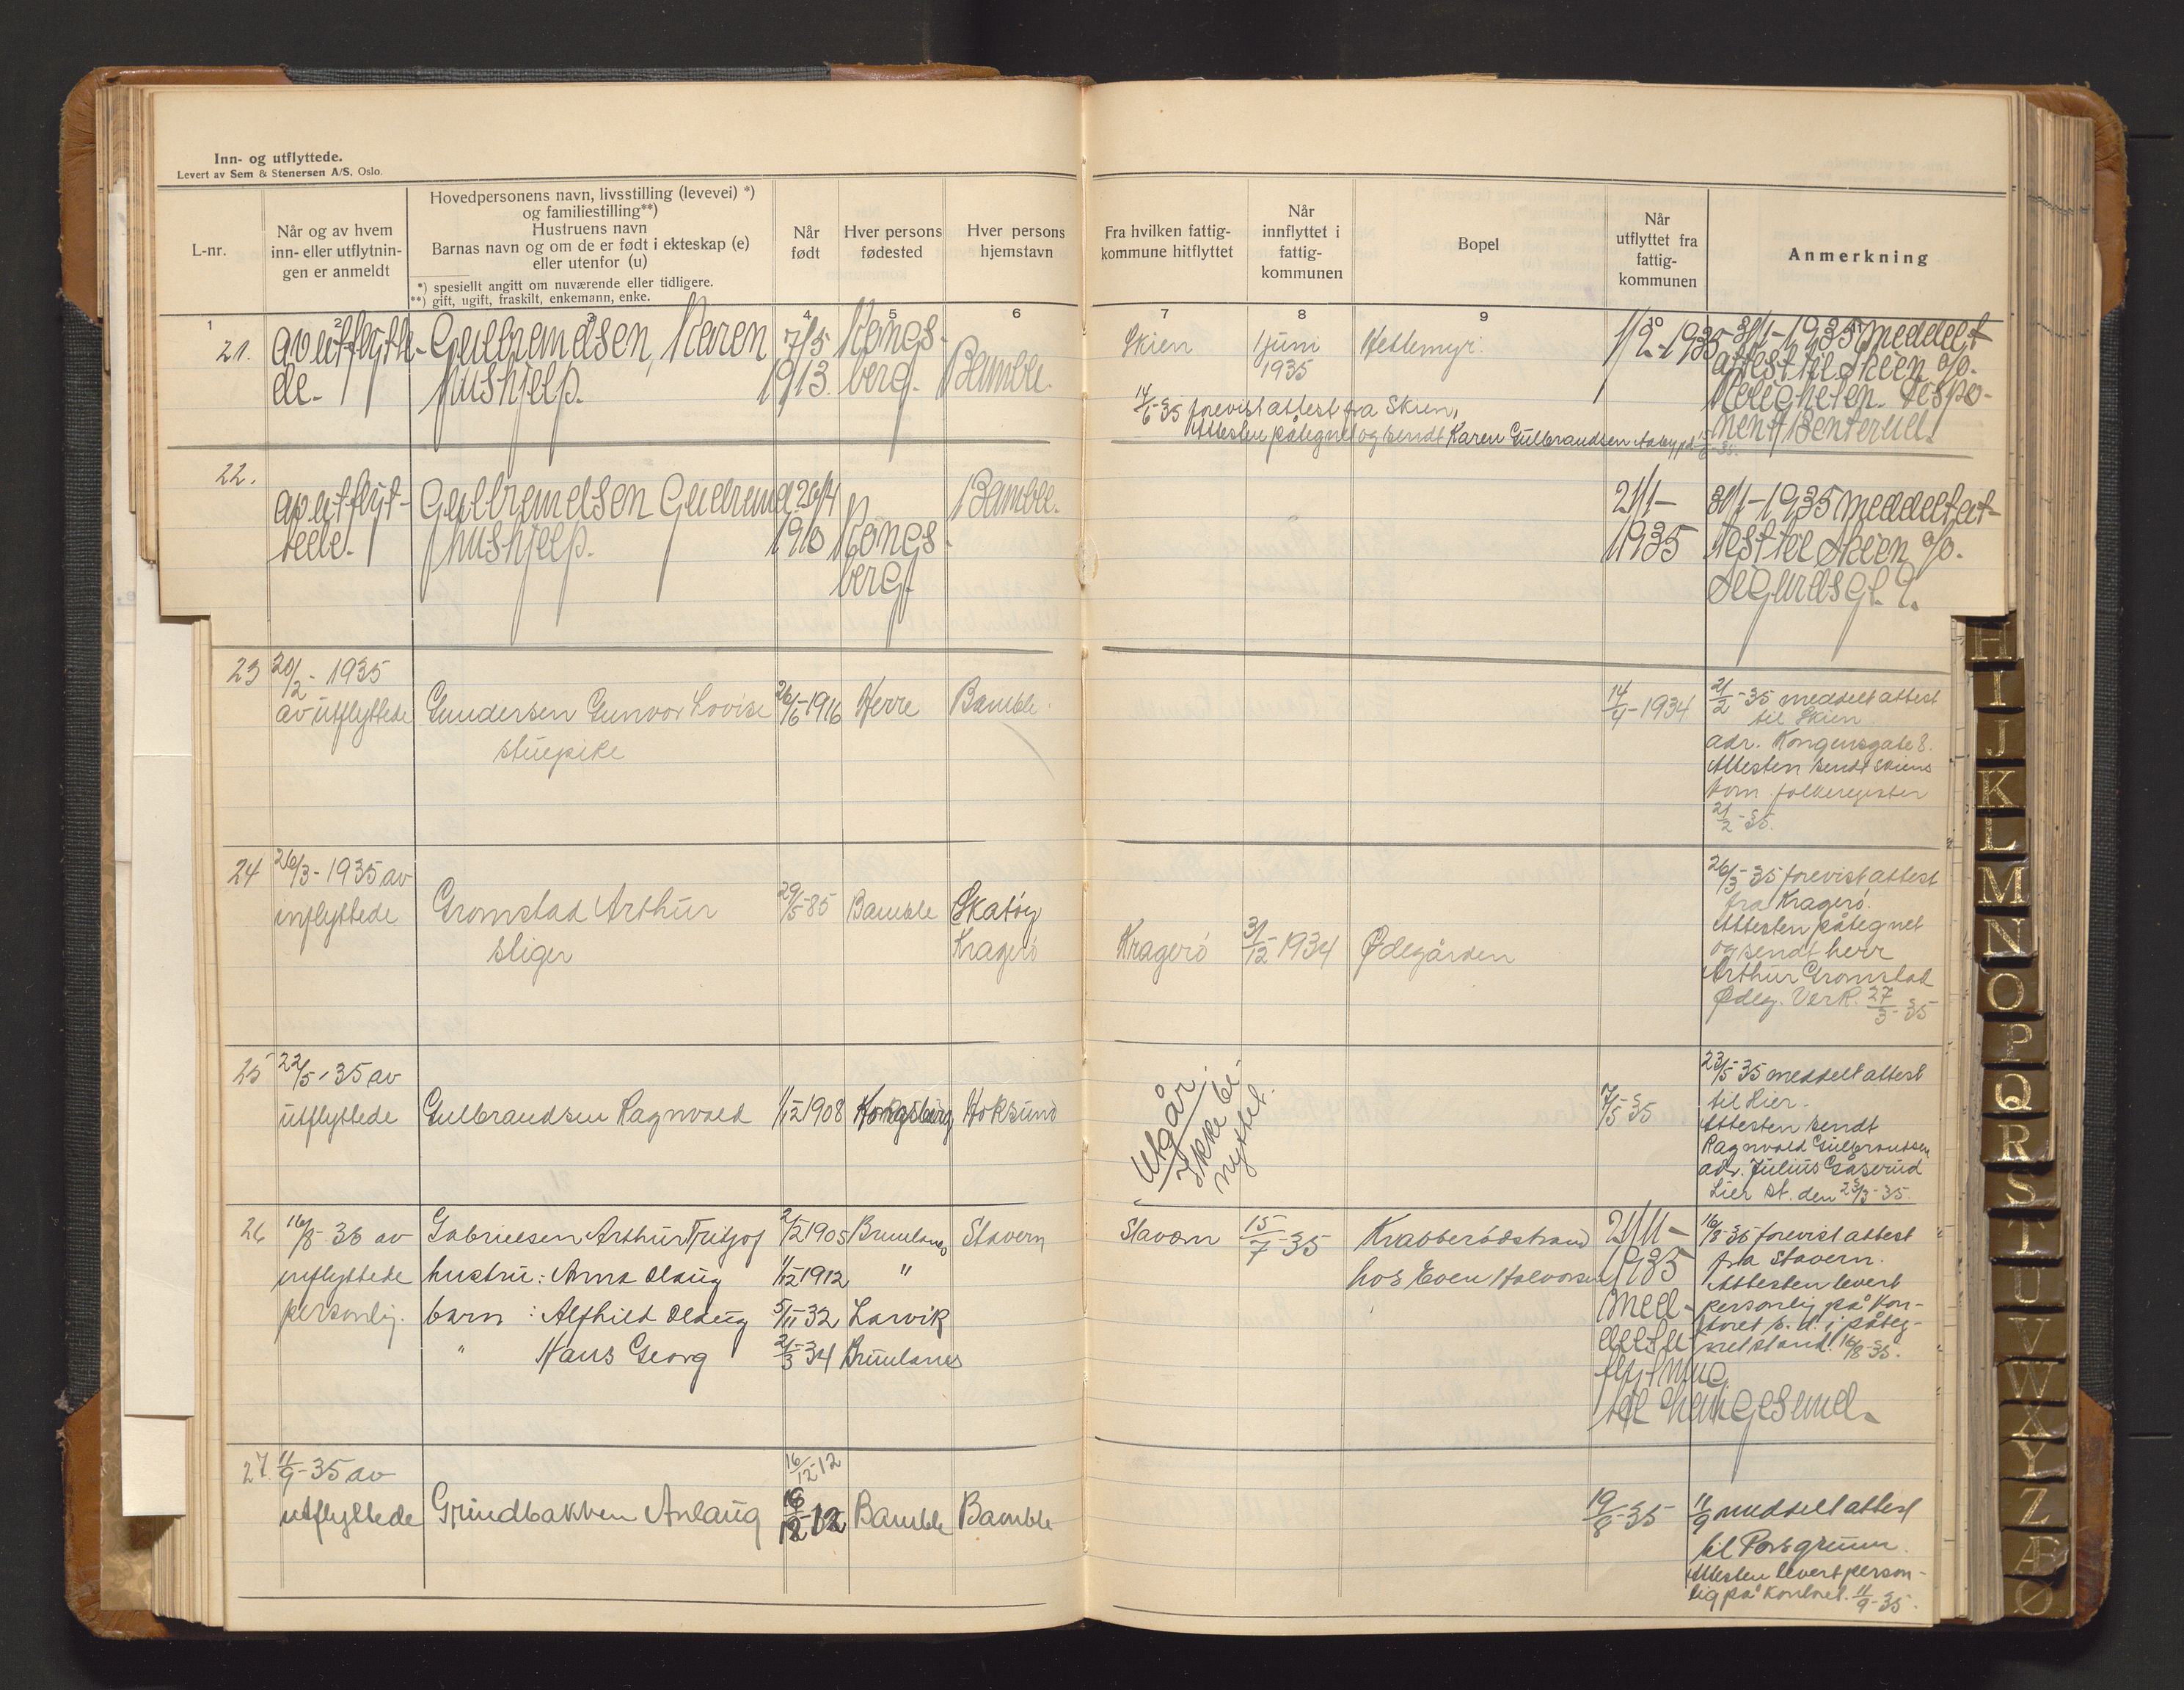 Inn- og utflyttede.
Levert av Sem & Stenersen A/S, Oslo.
L-nr.
Når og av hvem
inn- eller utflytnin-
gen er anmeldt
Hovedpersonens navn, livsstilling (levevei) *)
og familiestilling**)
Hustruens navn
Barnas navn og om de er født i ekteskap (e)
eller utenfor (u)
*) spesiellt angitt om nuværende eller tidligere.
**) gift, ugift, fraskilt, enkemann, enke.
Når
født
Hver persons
fødested
Hver persons
hjemstavn
Fra hvilken fattig-
kommune hitflyttet
Når
innflyttet i
fattig-
kommunen
Bopel
Når
utflyttet fra
fattig-
kommunen
Anmerkning
1 2 3 4 5 6 7 8 9 10 11
21. av utflytte- Gulbrandsen, Karen 7/5 Kongs- Skien 1 juni Hellemyr. 1/2-1935 30/1-1935 meddelt
de. hushjelp. 1913. berg. Bamble. 1935 attest til Skien c/o.
14/6-35 forevist attest fra Skien,
Attesten påtegnet og sendt Karen Gulbrandsen
22.
av utflyt- Gulbrandsen Gudrund 26/4 Bamble. 21/1- 30/1-1935 meddelt at-
tede. hushjelp. 1910 Kongs- 1935 test til Skien c/o.
berg.
23 20/2-1935
av utflyttede Gundersen Gunvor Lovise 26/6-1916 Herre Bamble 14/4-1934 21/2-35 meddelt attest
stuepike til Skien
adr. Kongensgate 8.
Attesten sendt Skiens
kom. folkeregister
21/2-35.
24 26/3-1935 av 26/3-35 forevist attest
innflyttede Gromstad Arthur 29/5-85 Bamble Skatøy fra Kragerö.
stiger Kragerö Kragerö 31/12-1934 Ødegården Attesten påtegnet
og sendt herr
Arthur Gromstad
Ødeg. Verk. 27/3-35
25 22/5-35 av 23/5-35 meddelt attest
utflyttede Gulbrandsen Ragnvald 1/12 1908 Kongsberg Hoksund Utgår. Ikke be- nyttet. 7/5-35 til Lier.
Attesten sendt
Ragnvald Gulbrandsen
adr. Julius Gåserud
Lier st. den 23/5-35.
26 16/8-35 av Gabrielsen Arthur Fritjof 2/12 1905 Brunlanes Stavern Stavern 15/7-35 Krabberødstrand 21/11- 16/8-35 forevist attest
innflyttede hustru: Anna Olaug 1/12 1912 " hos Even Halvorsen 1935 fra Stavern.
personlig. barn : Alfhild Olaug 5/11-32 Larvik med- Attesten levert
personlig på kon-
" Hans Georg 21/3-34 Brunlanes toret s. d. i påteg-
net stand. 16/8-35.
flytning
til Langesund.
27. 11/9-35 av 16/12-12
utflyttede Grindbakken Anlaug 16/12-12 Bamble Bamble 19/8-35 11/9 meddelt attest
til Porsgrunn.
Attesten levert person-
lig på kontoret. 11/9-35.
H
I
J
K
L
M
N
O
P
Q
R
S
T
U
V
W
X
Y
Z
Æ
Ø